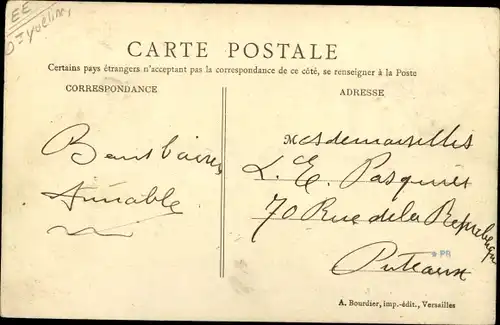 EE
CARTE POSTALE
Certains pays étrangers n'acceptant pas la correspondance de ce côté, se renseigner à la Poste
CORRESPONDANCE
ADRESSE
Bons baisers
Aimable
Mesdemoiselles
L. E. Pasquiés
70 Rue de la République
PB
Puteaux
A. Bourdier, imp.-édit., Versailles